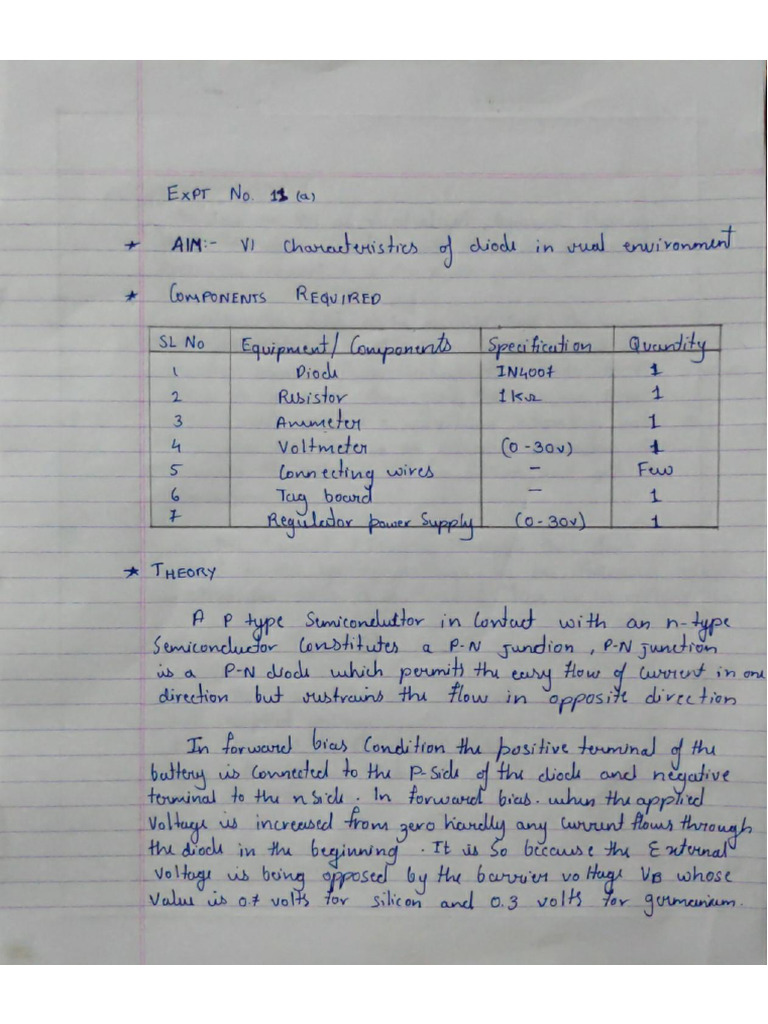 EXPT No. 11 (a)
* AIM:- VI characteristics of diode in real environment
* COMPONENTS REQUIRED
SL No Equipment/Components Specification Quantity
1 Diode IN4007 1
2 Resistor 1KΩ 1
3 Ammeter 1
4 Voltmeter (0-30v) 1
5 Connecting wires - Few
6 Tag board - 1
7 Regulator power Supply (0-30v) 1
* THEORY
A P type Semiconductor in contact with an n-type
Semiconductor constitutes a P-N junction, P-N junction
is a P-N diode which permits the easy flow of current in one
direction but restrains the flow in opposite direction
In forward bias condition the positive terminal of the
battery is connected to the P-side of the diode and negative
terminal to the n side. In forward bias. when the applied
voltage is increased from zero hardly any current flows through
the diode in the beginning. It is so because the External
voltage is being opposed by the barrier voltage VB whose
value is 0.7 volts for silicon and 0.3 volts for germanium.